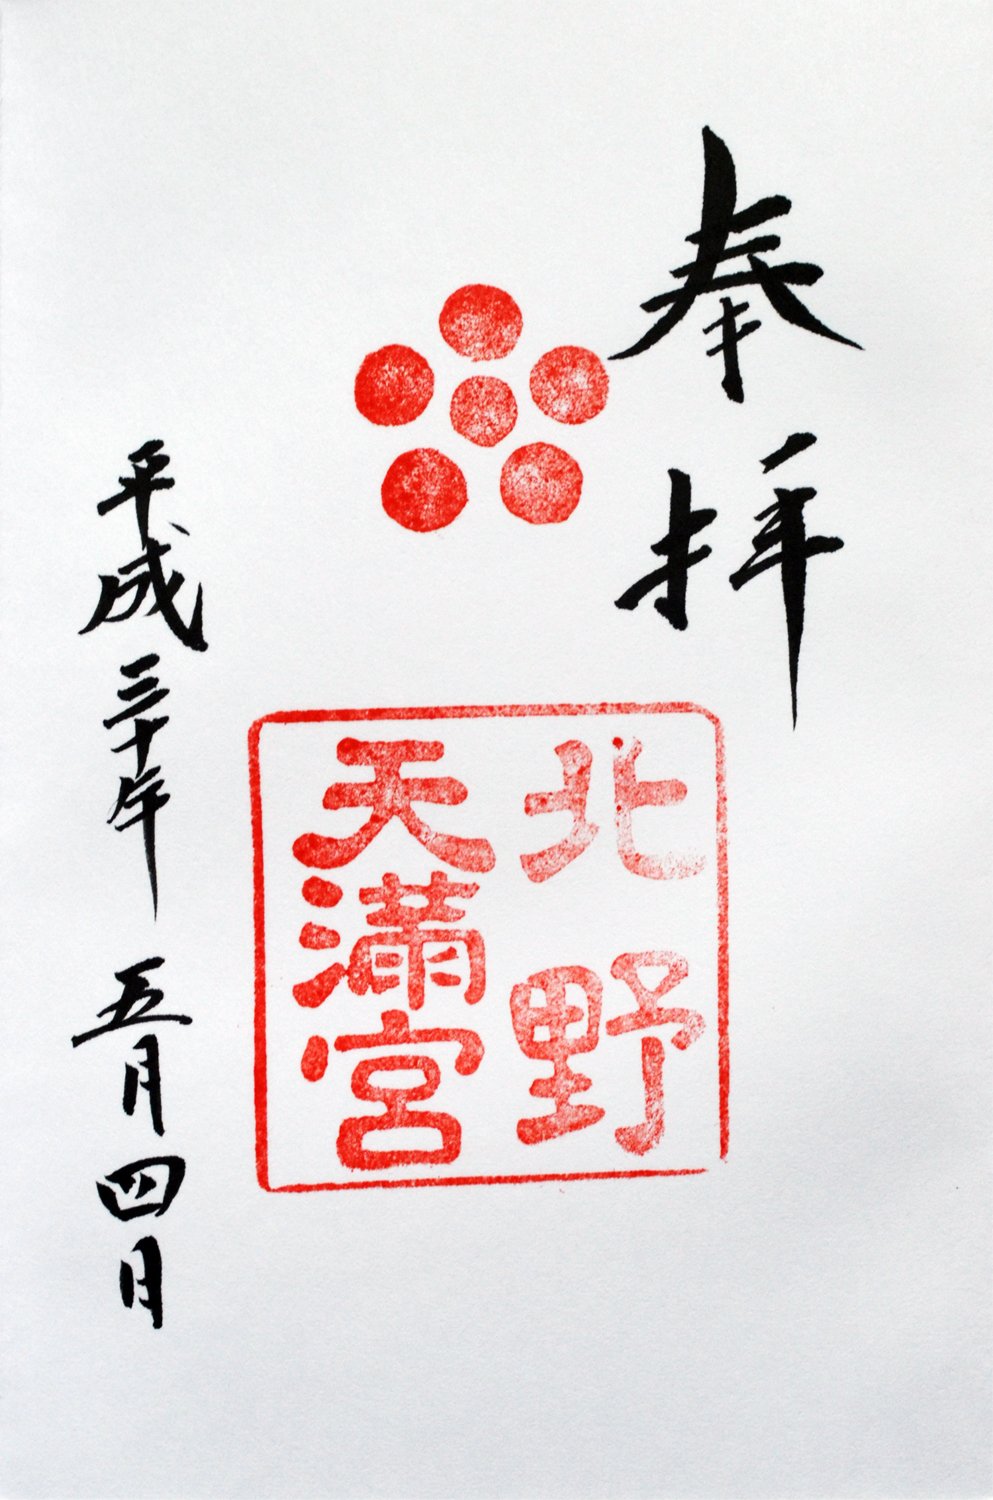 奉拝
北野
天満宮
平成三十年五月四日